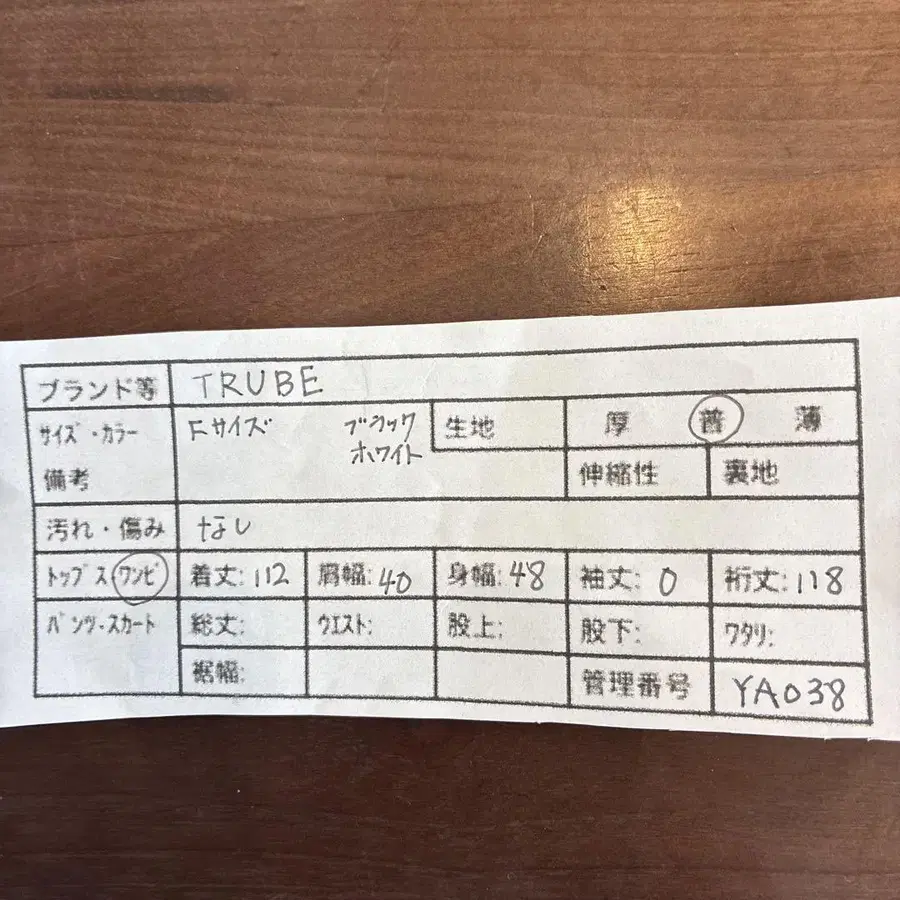 ブランド等 TRUBE
サイズ・カラー Fサイズ ブラック 生地 厚 普 薄
ホワイト
備考 伸縮性 裏地
汚れ・傷み なし
トップス ワンピ 着丈:112 肩幅:40 身幅:48 袖丈:0 裄丈:118
パンツ・スカート 総丈: ウエスト: 股上: 股下: ワタリ:
裾幅: 管理番号 YA038